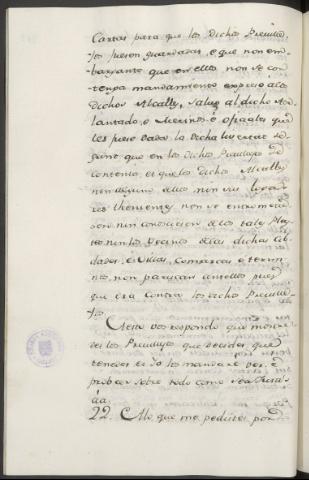 Cartas para que los Dichos Preville-
jos fuesen guardados, e que non em-
bargante que en ellos non se con-
tenga mandamiento expreso a los
dichos Alcalls, salvo al dicho Ade-
lantado, e Merinos e oficiales que
les fuese dada la dicha
que en los Dichos Previllejos se
contenia, e que los dichos Alcalls
nin alguno dellos non sus lugares
thenientes non se entrometie-
sen nin conosciesen de los tales Pley-
tos nin los Vecinos de las dichas Cib-
dades, e Villas, Comarcas e termi-
nos non parezcan ante ellos pues
que era contra los dichos Preville-
jos.
A esto vos respondo que mostre-
des los Previllejos que decides que
tenedes, e Yo los mandaré ver, e
proveer sobre todo como sea
22. A lo que me pedistes por